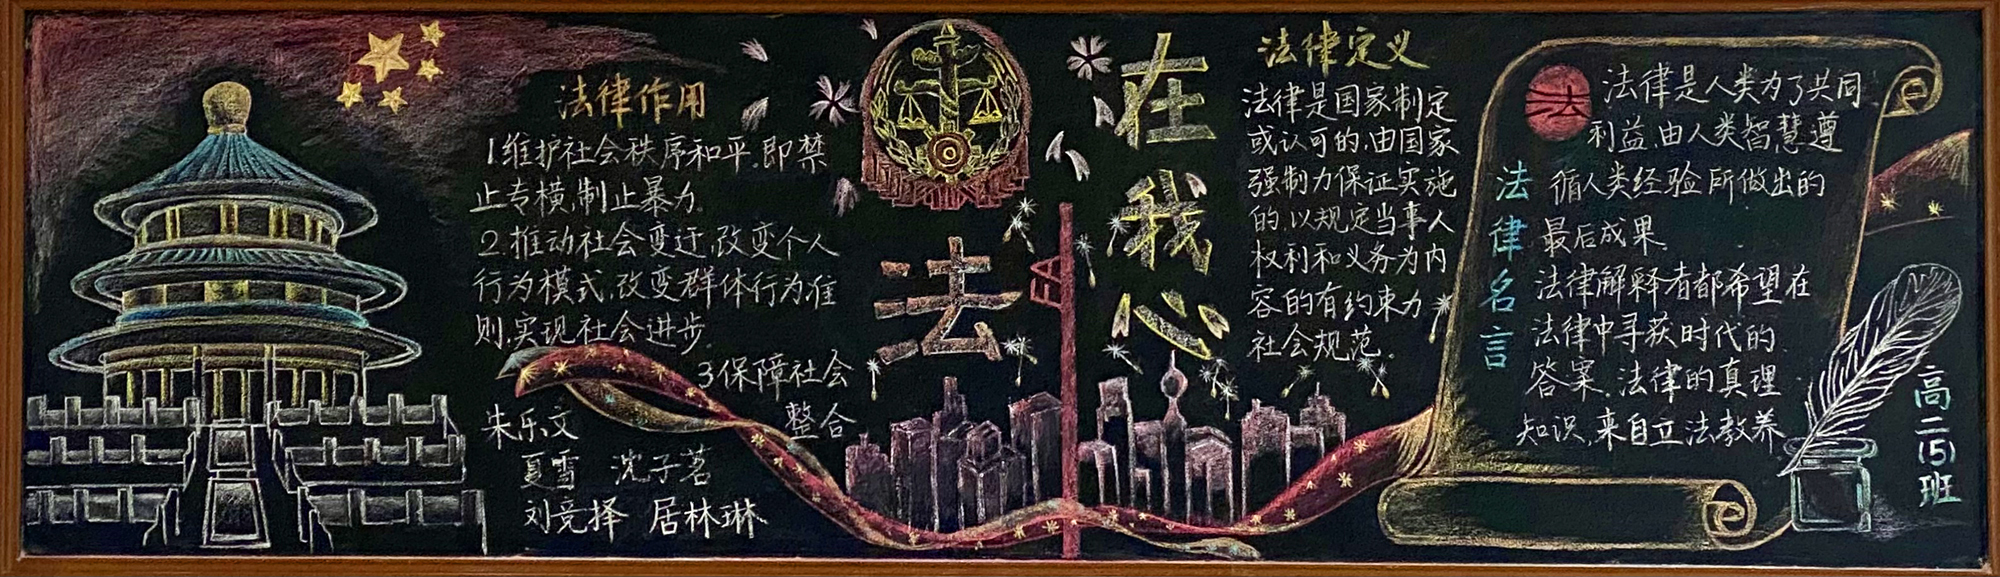 法律作用
1.维护社会秩序和平,即禁
止专横,制止暴力.
2.推动社会变迁,改变个人
行为模式,改变群体行为准
则,实现社会进步.
3保障社会
整合
朱乐文
夏雪 沈子茗
刘竞择 居林琳
法
在我心
法律定义
法律是国家制定
或认可的,由国家
强制力保证实施
的,以规定当事人
权利和义务为内
容的有约束力
社会规范。
法律名言
法
法律是人类为了共同
利益,由人类智慧遵
循人类经验所做出的
最后成果
法律解释者都希望在
法律中寻获时代的
答案.法律的真理
知识,来自立法教养
高二(5)班